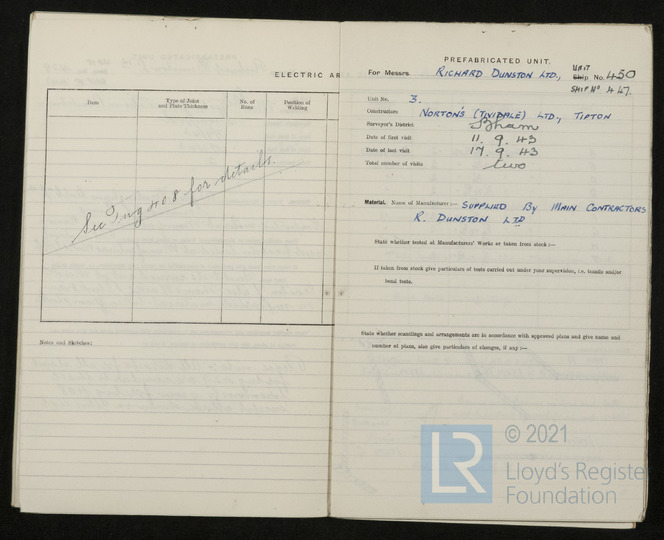 ELECTRIC AR
Item
Type of Joint and Plate Thickness
No. of Runs
Position of Welding
See Tug 408 for details.
Notes and Sketches:
PREFABRICATED UNIT.
UNIT
For Messrs. RICHARD DUNSTON LTD., Ship No. 430
SHIP No 447.
Unit No. 3.
Constructors NORTON'S (TIVIDALE) LTD., TIPTON
Surveyor's District B'ham
Date of first visit 11. 9. 43
Date of last visit 17. 9. 43
Total number of visits two
Material. Name of Manufacturer:— SUPPLIED BY MAIN CONTRACTORS
R. DUNSTON LTD
State whether tested at Manufacturers' Works or taken from stock:—
If taken from stock give particulars of tests carried out under your supervision, i.e. tensile and/or
bend tests.
State whether scantlings and arrangements are in accordance with approved plans and give name and
number of plans, also give particulars of changes, if any:—
© 2021
LR
Lloyd's Register
Foundation